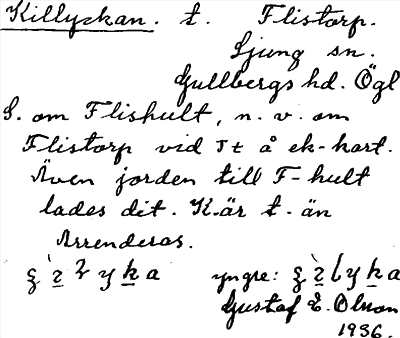 Killyckan. t. Flistorp.
Ljung sn.
Gullbergs hd. Ögl
S. om Flishult, n. v. om
Flistorp vid Jt å ek-kart.
Även jorden till F-hult
lades dit. K. är t. än
Arrenderas.
yngre:
Gustaf E. Olson
1936.